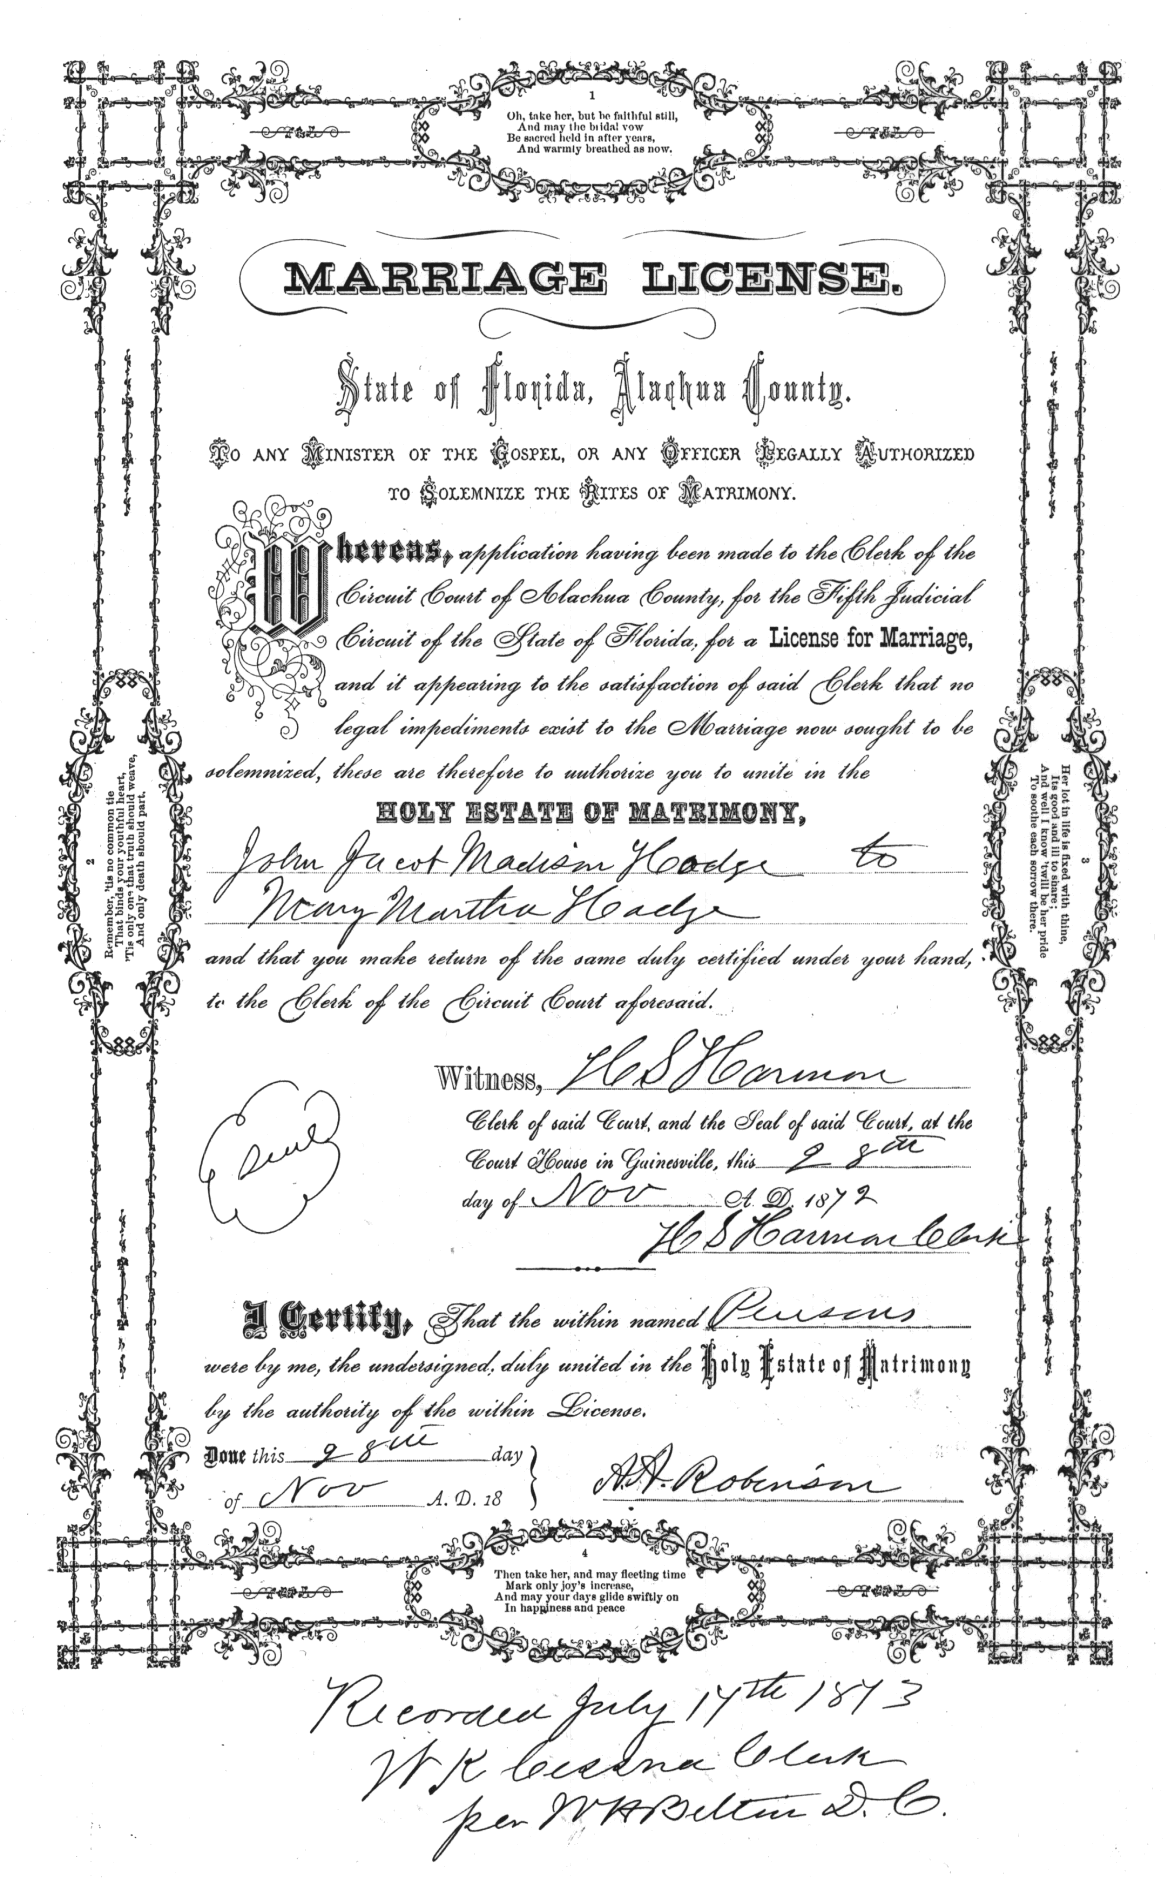 1
Oh, take her, but be faithful still,
And may the bridal vow
Be sacred held in after years,
And warmly breathed as now.
MARRIAGE LICENSE.
State of Florida, Alachua County.
TO ANY MINISTER OF THE GOSPEL, OR ANY OFFICER LEGALLY AUTHORIZED
TO SOLEMNIZE THE RITES OF MATRIMONY.
Whereas, application having been made to the Clerk of the
Circuit Court of Alachua County, for the Fifth Judicial
Circuit of the State of Florida, for a License for Marriage,
and it appearing to the satisfaction of said Clerk that no
legal impediments exist to the Marriage now sought to be
solemnized, these are therefore to authorize you to unite in the
HOLY ESTATE OF MATRIMONY,
John Jacob Madison Hodge to
Mary Martha Hodge
and that you make return of the same duly certified under your hand,
to the Clerk of the Circuit Court aforesaid.
2
Remember, 'tis no common tie
That binds your youthful heart,
'Tis only one that truth should weave,
And only death should part.
3
Her lot in life is fixed with thine,
Its good and ill to share;
And well I know 'twill be her pride
To soothe each sorrow there.
Witness, H S Harmon
Clerk of said Court, and the Seal of said Court, at the
Court House in Gainesville, this 28th
day of Nov A. D. 1872
H S Harmon Clerk
Seal
I Certify, That the within named Persons
were by me, the undersigned, duly united in the Holy Estate of Matrimony
by the authority of the within License.
Done this 28th day
of Nov A. D. 18
A. A. Robinson
4
Then take her, and may fleeting time
Mark only joy's increase,
And may your days glide swiftly on
In happiness and peace
Recorded July 17th 1873
W K Cessna Clerk
per W H Belton D. C.